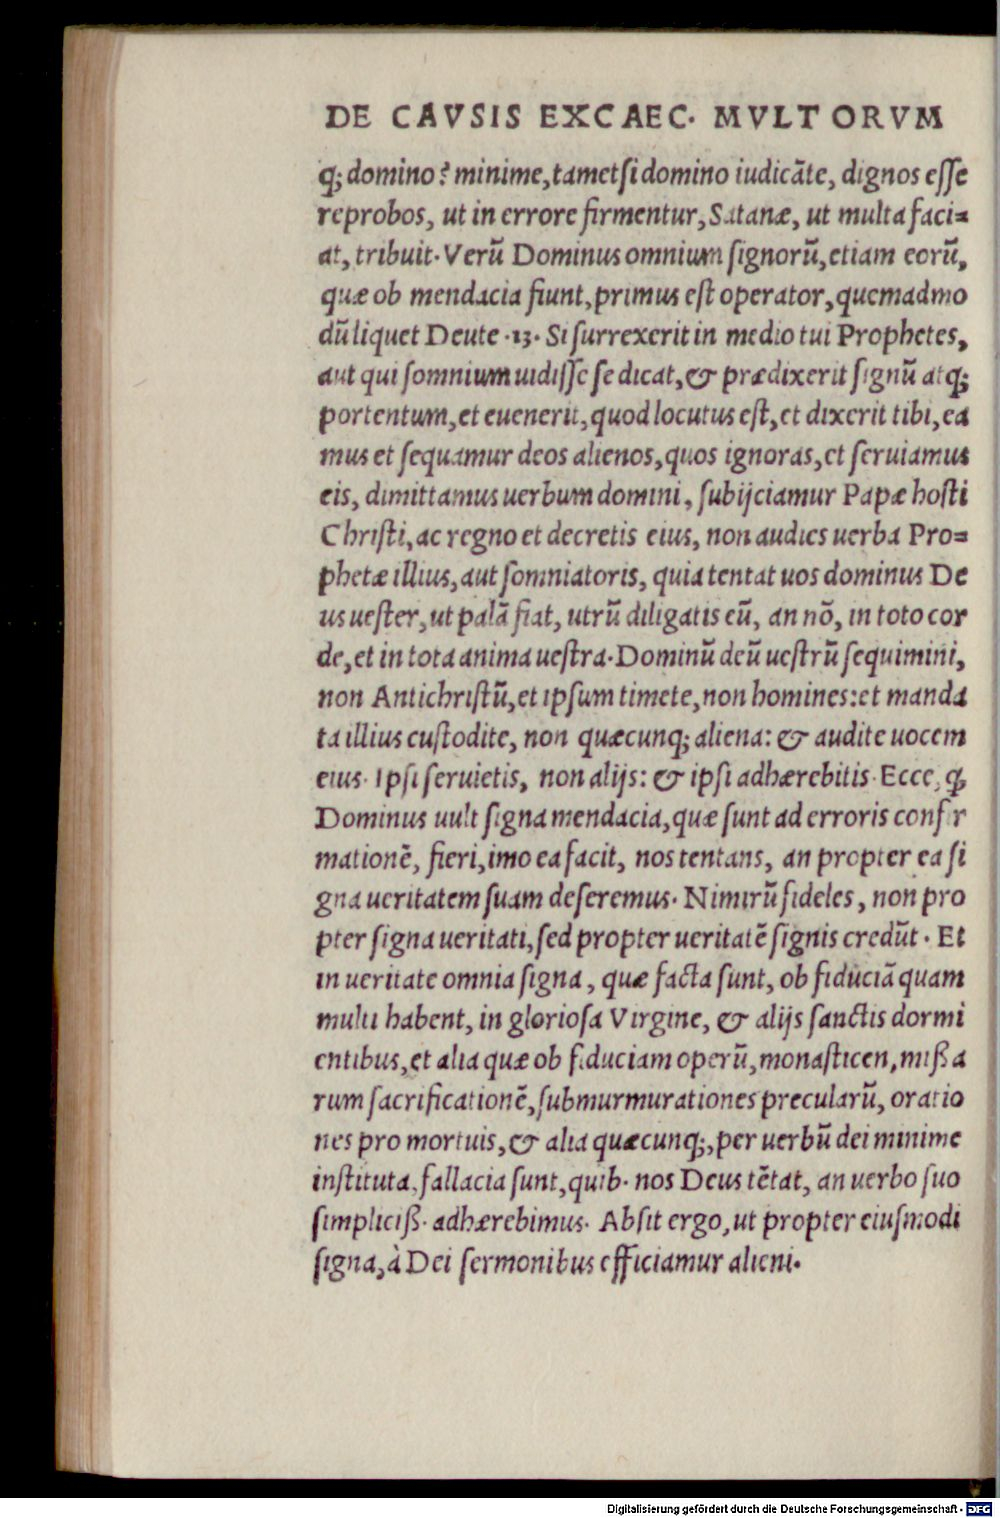 DE CAVSIS EXCAEC. MVLTORVM
q; domino? minime, tametsi domino iudicāte, dignos esse
reprobos, ut in errore firmentur, Satanæ, ut multa faci=
at, tribuit. Verū Dominus omnium signorū, etiam eorū,
quæ ob mendacia fiunt, primus est operator, quemadmo
dū liquet Deute .13. Si surrexerit in medio tui Prophetes,
aut qui somnium uidisse se dicat, & prædixerit signū atq;
portentum, et euenerit, quod locutus est, et dixerit tibi, ea
mus et sequamur deos alienos, quos ignoras, et seruiamus
eis, dimittamus uerbum domini, subijciamur Papæ hosti
Christi, ac regno et decretis eius, non audies uerba Pro=
phetæ illius, aut somniatoris, quia tentat uos dominus De
us uester, ut palā fiat, utrū diligatis eū, an nō, in toto cor
de, et in tota anima uestra. Dominū deū uestrū sequimini,
non Antichristū, et ipsum timete, non homines: et manda
ta illius custodite, non quæcunq; aliena: & audite uocem
eius. Ipsi seruietis, non alijs: & ipsi adhærebitis. Ecce, ꝙ
Dominus uult signa mendacia, quæ sunt ad erroris confir
mationē, fieri, imo ea facit, nos tentans, an propter ea si
gna ueritatem suam deseremus. Nimirū fideles, non pro
pter signa ueritati, sed propter ueritatē signis credūt. Et
in ueritate omnia signa, quæ facta sunt, ob fiduciā quam
multi habent, in gloriosa Virgine, & alijs sanctis dormi
entibus, et alia quæ ob fiduciam operū, monasticen, missa
rum sacrificationē, submurmurationes precularū, oratio
nes pro mortuis, & alia quæcunq;, per uerbū dei minime
instituta, fallacia sunt, quib. nos Deus tētat, an uerbo suo
simpliciß. adhærebimus. Absit ergo, ut propter eiusmodi
signa, à Dei sermonibus efficiamur alieni.
Digitalisierung gefördert durch die Deutsche Forschungsgemeinschaft - DFG